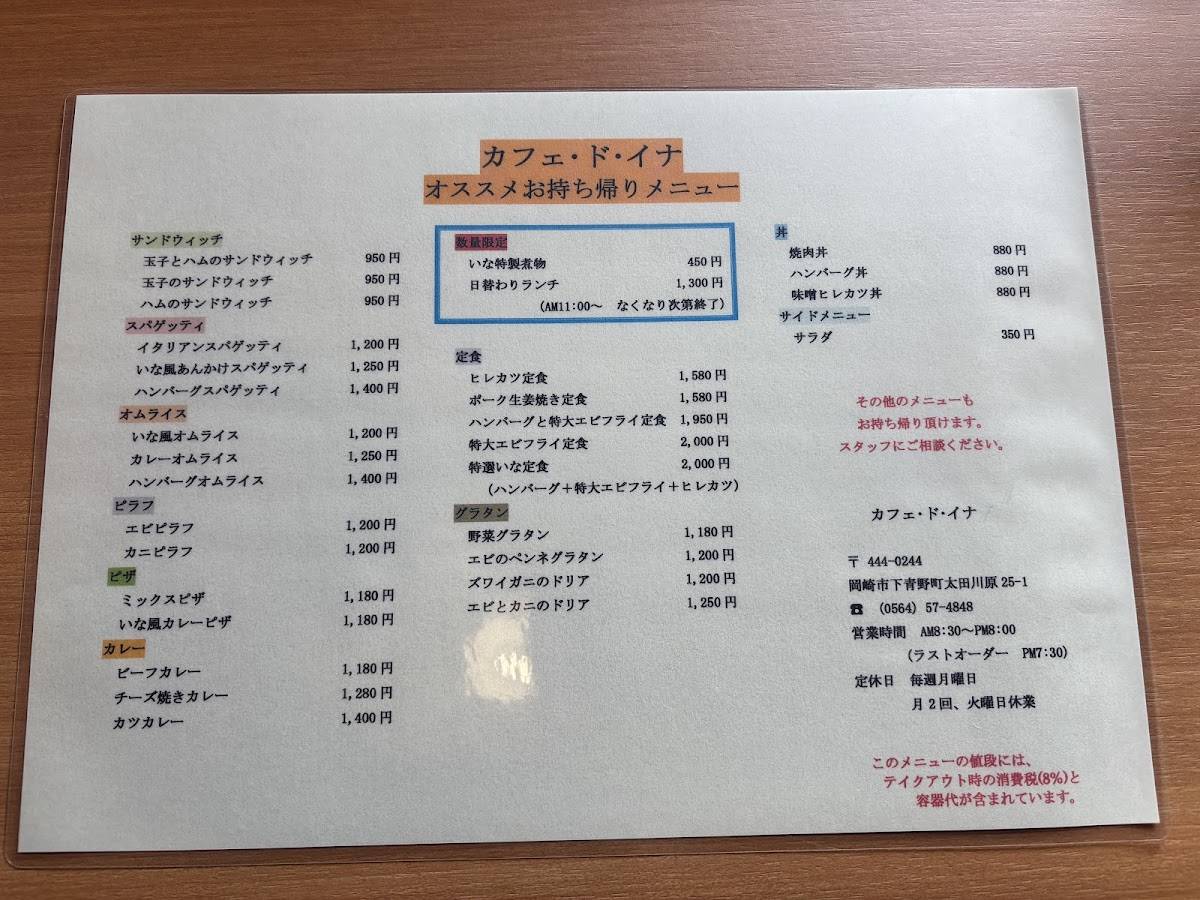 カフェ・ド・イナ
オススメお持ち帰りメニュー
サンドウィッチ
玉子とハムのサンドウィッチ 950円
玉子のサンドウィッチ 950円
ハムのサンドウィッチ 950円
スパゲッティ
イタリアンスパゲッティ 1,200円
いな風あんかけスパゲッティ 1,250円
ハンバーグスパゲッティ 1,400円
オムライス
いな風オムライス 1,200円
カレーオムライス 1,250円
ハンバーグオムライス 1,400円
ピラフ
エビピラフ 1,200円
カニピラフ 1,200円
ピザ
ミックスピザ 1,180円
いな風カレーピザ 1,180円
カレー
ビーフカレー 1,180円
チーズ焼きカレー 1,280円
カツカレー 1,400円
数量限定
いな特製煮物 450円
日替わりランチ 1,300円
(AM11:00～ なくなり次第終了)
定食
ヒレカツ定食 1,580円
ポーク生姜焼き定食 1,580円
ハンバーグと特大エビフライ定食 1,950円
特大エビフライ定食 2,000円
特選いな定食 2,000円
(ハンバーグ＋特大エビフライ＋ヒレカツ)
グラタン
野菜グラタン 1,180円
エビのペンネグラタン 1,200円
ズワイガニのドリア 1,200円
エビとカニのドリア 1,250円
丼
焼肉丼 880円
ハンバーグ丼 880円
味噌ヒレカツ丼 880円
サイドメニュー
サラダ 350円
その他のメニューも
お持ち帰り頂けます。
スタッフにご相談ください。
カフェ・ド・イナ
〒 444-0244
岡崎市下青野町太田川原25-1
☎ (0564) 57-4848
営業時間 AM8:30～PM8:00
(ラストオーダー PM7:30)
定休日 毎週月曜日
月2回、火曜日休業
このメニューの値段には、
テイクアウト時の消費税(8%)と
容器代が含まれています。